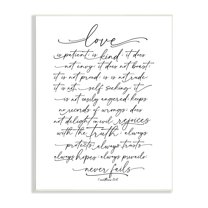 love
is patient is kind it does
not envy it does not boast
it is not proud is is not rude
it is not self seeking it
is not easily angered keeps
no records of wrongs does
not delight in evil rejoices
with the truth always
protects always trusts
always hopes always prevails
never fails